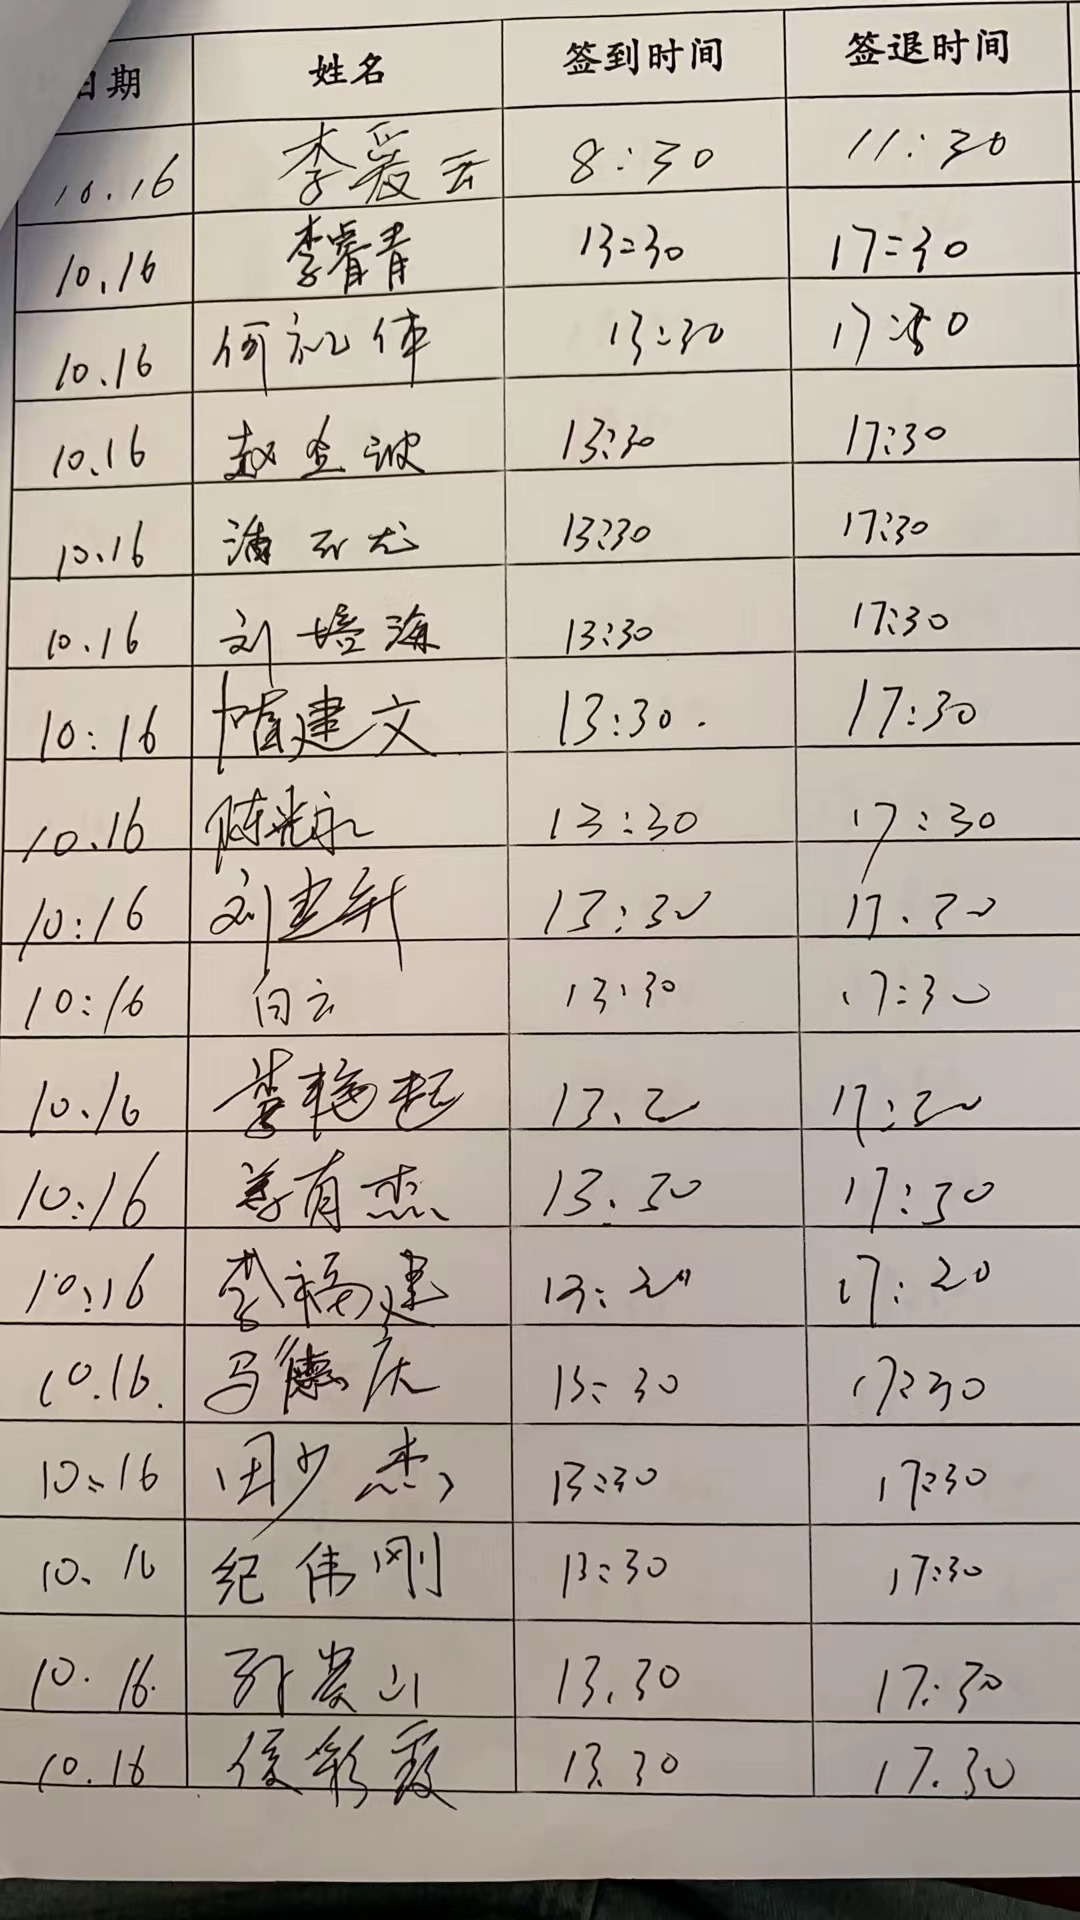 日期 姓名 签到时间 签退时间
10.16 李爱云 8:30 11:30
10.16 李睿青 13:30 17:30
10.16 何礼伟 13:30 17:30
10.16 赵金波 13:30 17:30
10.16 13:30 17:30
10.16 刘培海 13:30 17:30
10:16 隋建文 13:30. 17:30
10.16 陈光永 13:30 17:30
10:16 13:30 17.30
10:16 白云 13:30 17:30
10.16 17:30
10:16 姜有杰 13.30 17:30
10:16 李福建 17:20
10.16. 马德庆 13:30 17:30
10:16 田少杰 13:30 17:30
10.16 纪伟刚 13:30 17:30
10.16. 13.30 17:30
10.16 侯彩霞 13.30 17.30